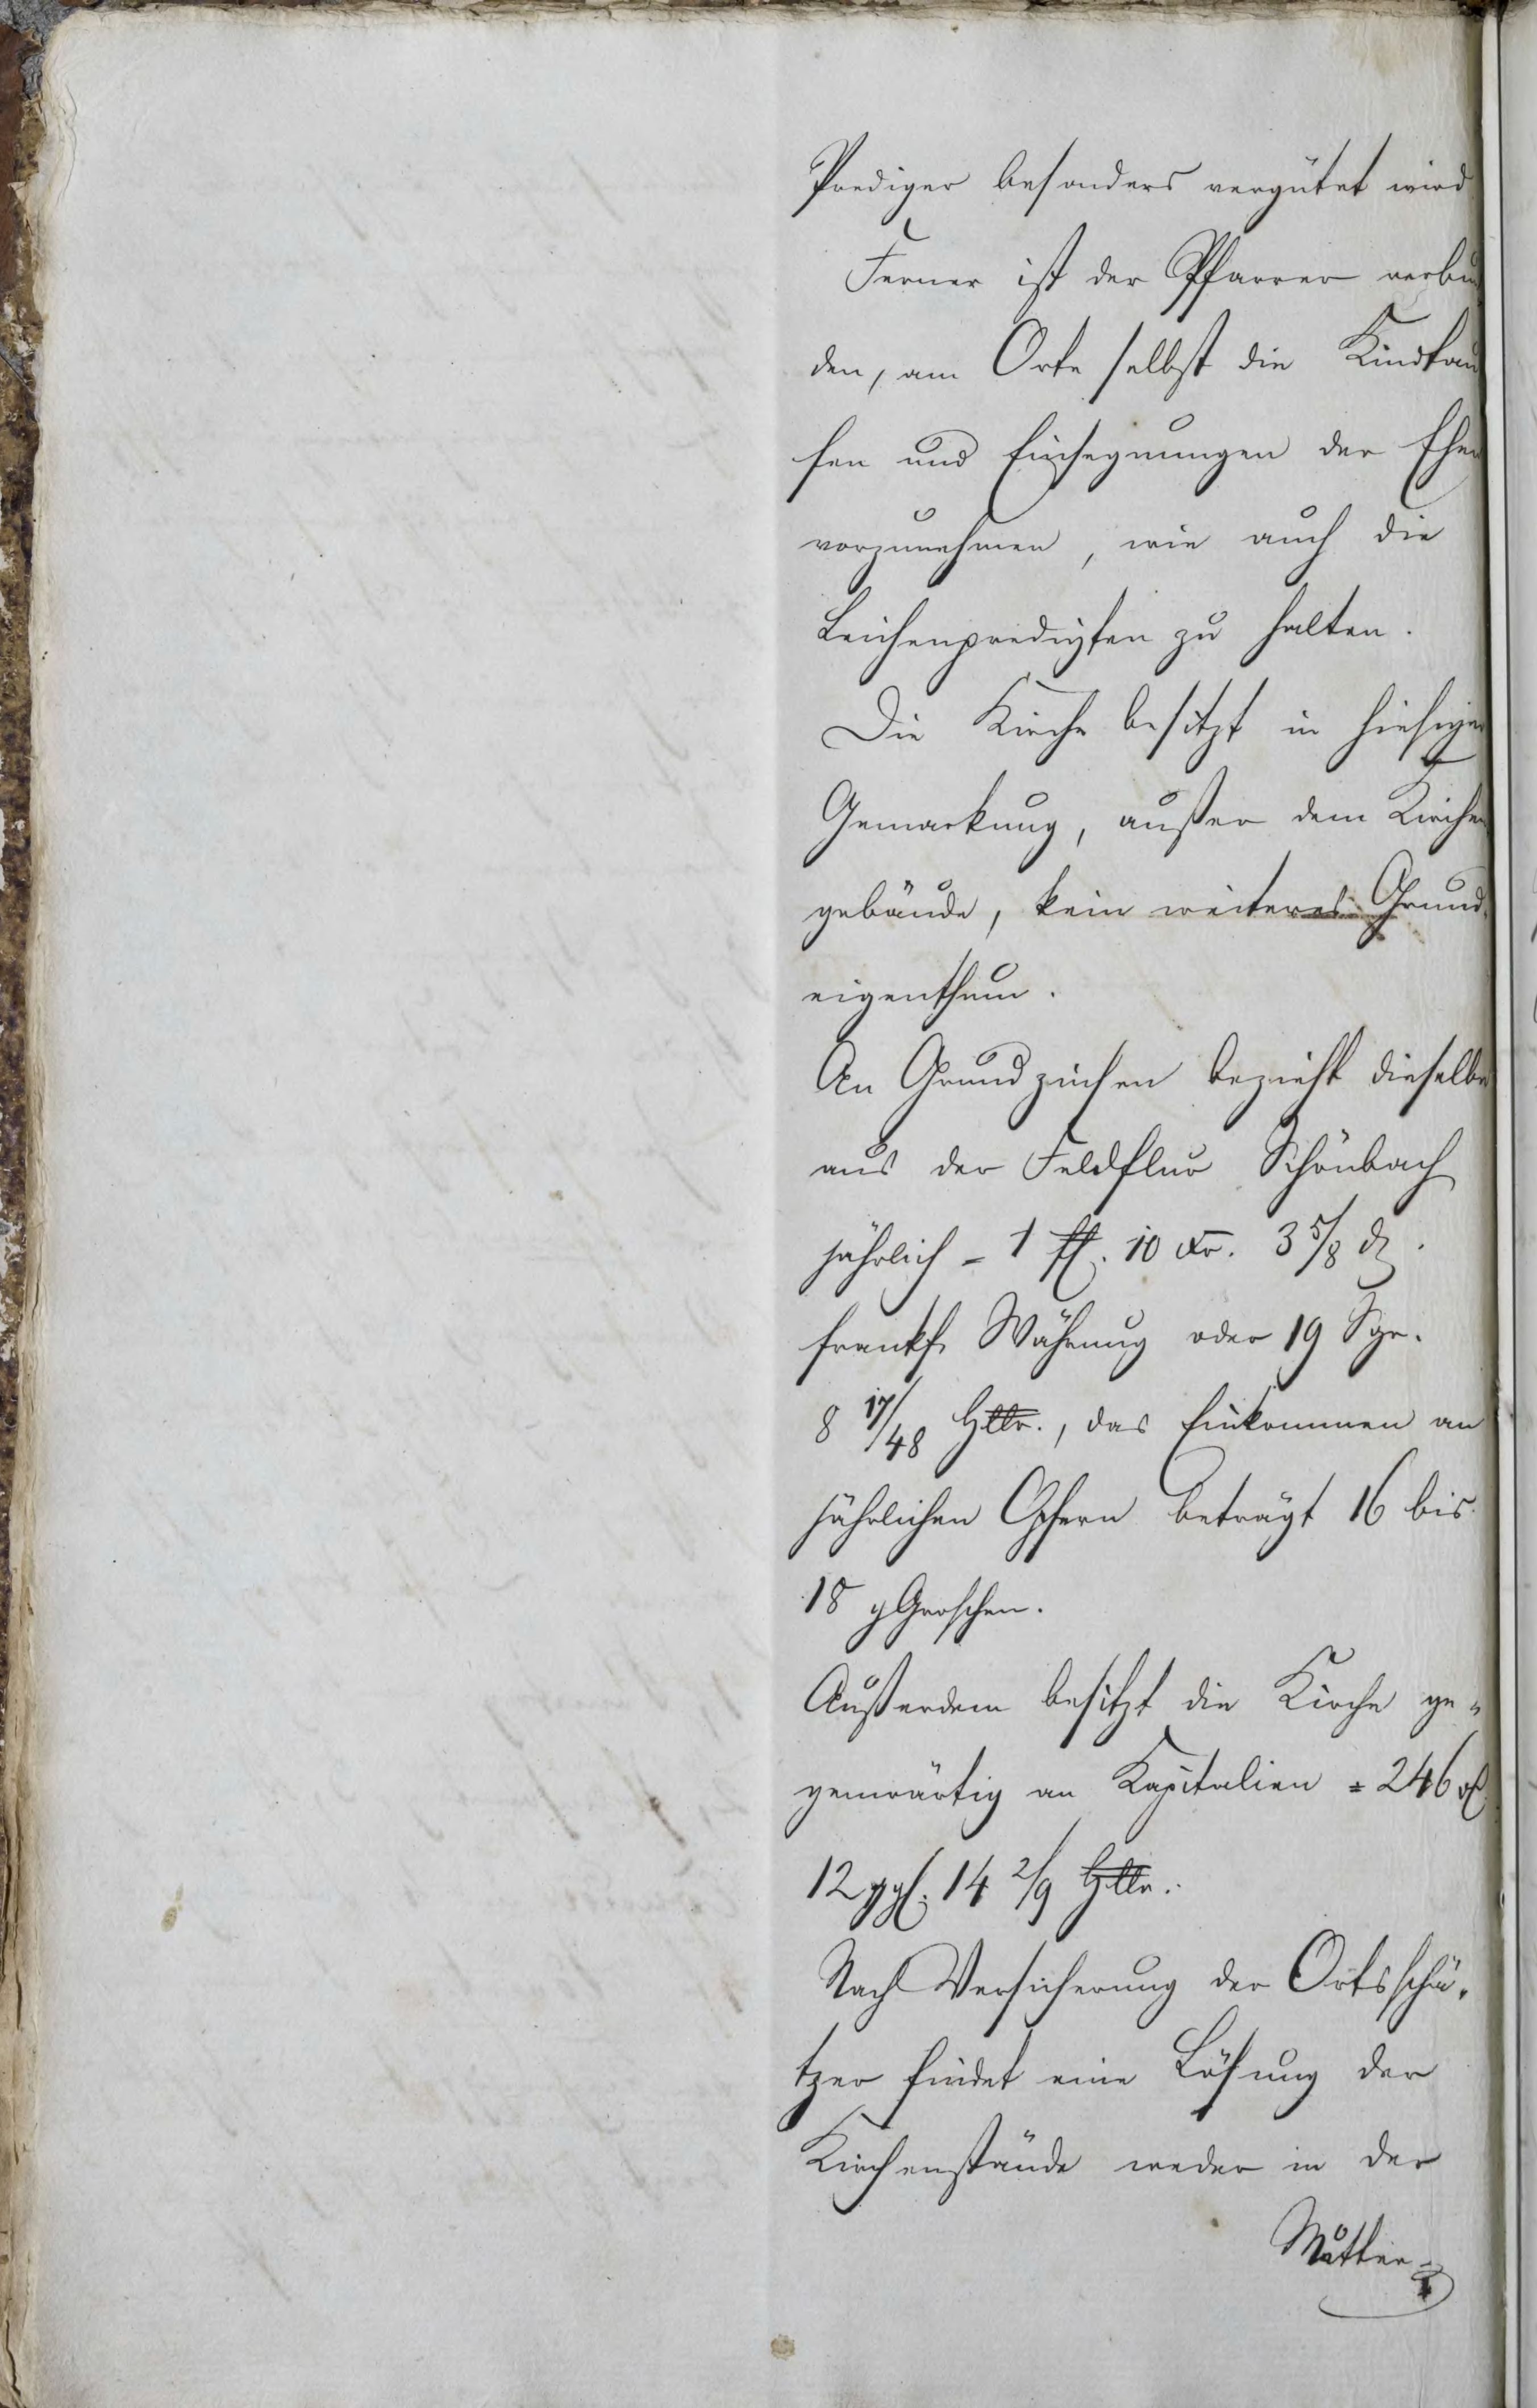 Prediger besonders vergütet wird
Ferner ist der Pfarrer verbun
den, am Orte selbst die Kindtau
fen und Einsegnungen der Ehen
vorzunehmen, wie auch die
Leichenpredigten zu halten.
Die Kirche besitzt in hiesiger
Gemarkung, außer dem Kirchen
gebäude, kein weiteres Grund
eigenthum.
An Grundzinsen bezieht dieselbe
aus der Feldflur Schönbach
jährlich = 1 fl. 10 Xr. 3 5/8 d.
frankf. Währung oder 19 Sgr.
8 17/48 Hllr., das Einkommen an
jährlichen Opfern beträgt 16 bis
18 gGroschen.
Außerdem besitzt die Kirche ge=
genwärtig an Kapitalien = 246
12 ggl. 14 2/9 Hllr.
Nach Versicherung der Ortsschä=
tzer findet eine Lösung der
Kirchenstände weder in der
Mutter=